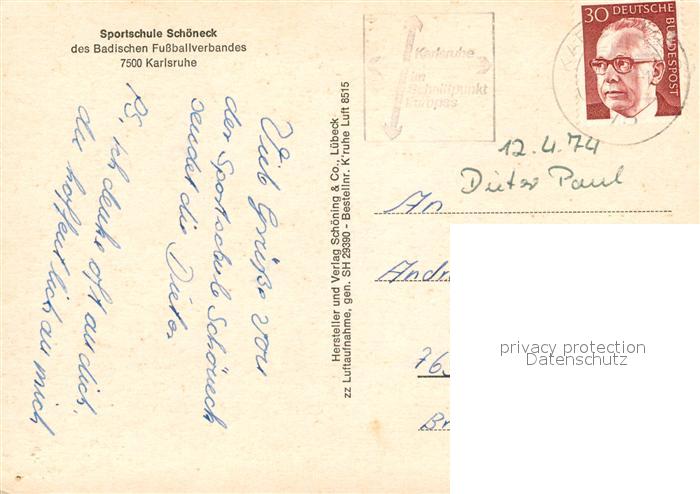 Sportschule Schöneck
des Badischen Fußballverbandes
7500 Karlsruhe
Viele Grüße von
der Sportschule Schöneck
sendet dir Dieter
PS, ich denke oft an dich,
du hoffentlich an mich
Hersteller und Verlag Schöning & Co., Lübeck
zz Luftaufnahme, gen. SH 29390 - Bestellnr. K'ruhe Luft 8515
Karlsruhe
im
Schnittpunkt
Europas
30 DEUTSCHE
BUNDESPOST
12.4.74
Dieter Paul
An
Andr
76
Br
privacy protection
Datenschutz